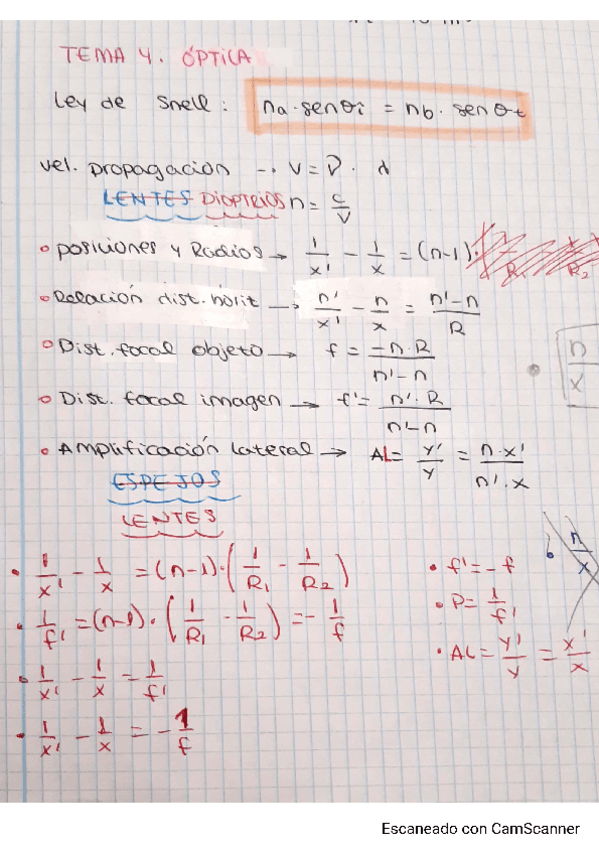 TEMA 4. ÓPTICA
Ley de Snell: na·senθi = nb·senθt
vel. propagación → v = ν · λ
LENTES DIOPTRIOS n = c/v
• posiciones y Radios → 1/x' - 1/x = (n-1)· R1 R2
• Relación dist. holit → n'/x' - n/x = n'-n/R
• Dist. focal objeto → f = -n·R/n'-n
• Dist. focal imagen → f' = n'·R/n'-n
• Amplificación lateral → AL = y'/y = n·x'/n'·x
n/x
ESPEJOS
LENTES
n/x
• 1/x' - 1/x = (n-1)·(1/R1 - 1/R2)
• 1/f' = (n-1)·(1/R1 - 1/R2) = -1/f
• 1/x' - 1/x = 1/f'
• 1/x' - 1/x = -1/f
• f' = -f
• P = 1/f'
• AL = y'/y = x'/x
Escaneado con CamScanner